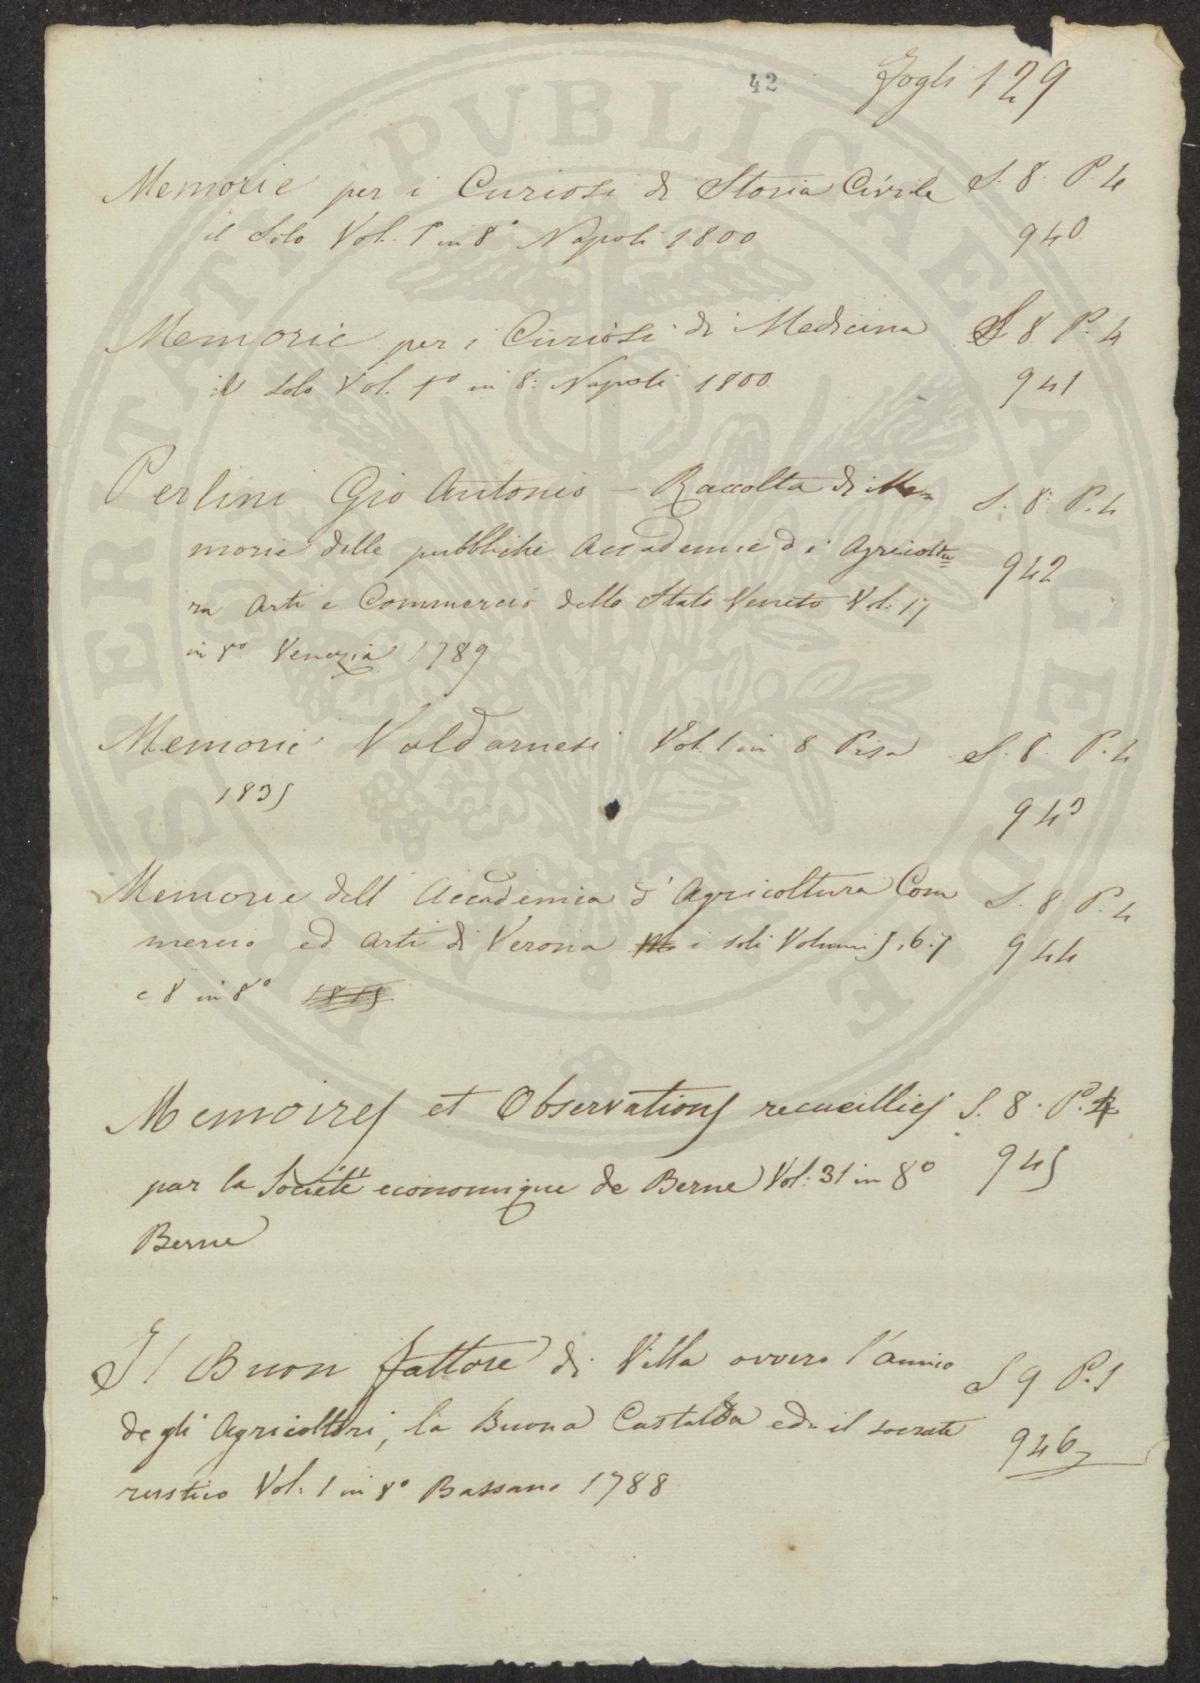 42
fogli 129
Memorie per i Curiosi di Storia Civile S. 8. P. 4
il solo Vol. 1° in 8° Napoli 1800 940
Memorie per i Curiosi di Medicina S 8 P. 4
il solo Vol. 1° in 8: Napoli 1800 941
Perlini Gio Antonio – Raccolta di Me= S. 8. P. 4
morie delle pubbliche Accademie di Agricoltu= 942
ra Arti e Commercio dello Stato Veneto Vol: 17
in 8° Venezia 1789
Memorie Valdarnesi Vol. 1 in 8 Pisa S. 8. P. 4
1835 943
Memorie dell' Accademia d' Agricoltura Com S. 8 P. 4
mercio ed Arti di Verona i soli Volumi 5, 6. 7 944
e 8 in 8° 1815
Memoires et Observations recueillies S. 8. P. 4
par la Société economique de Berne Vol: 31 in 8° 945
Berne
Il Buon fattore di Villa ovvero l'amico S 9 P. 1
degli Agricoltori, la Buona Castalda ed il socrate 946
rustico Vol: 1 in 8° Bassano 1788